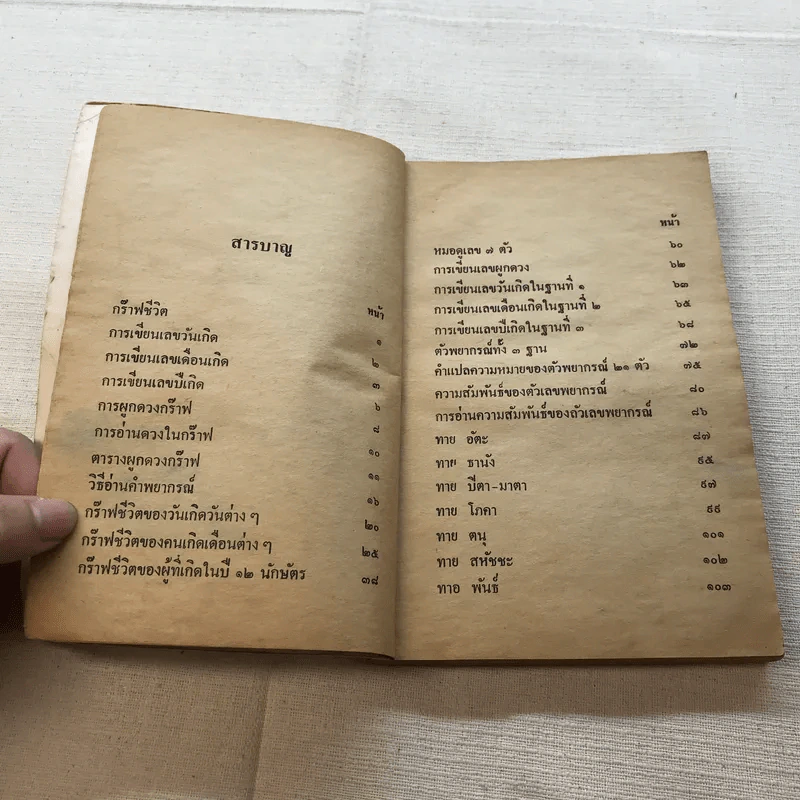 สารบาญ
หน้า
กร๊าฟชีวิต ๑
การเขียนเลขวันเกิด ๒
การเขียนเลขเดือนเกิด ๓
การเขียนเลขปีเกิด ๖
การผูกดวงกร๊าฟ ๘
การอ่านดวงในกร๊าฟ ๑๐
ตารางผูกดวงกร๊าฟ ๑๑
วิธีอ่านคำพยากรณ์ ๑๖
กร๊าฟชีวิตของวันเกิดวันต่าง ๆ ๒๐
กร๊าฟชีวิตของคนเกิดเดือนต่าง ๆ ๒๕
กร๊าฟชีวิตของผู้ที่เกิดในปี ๑๒ นักษัตร ๓๘
หน้า
หมอดูเลข ๗ ตัว ๖๐
การเขียนเลขผูกดวง ๖๒
การเขียนเลขวันเกิดในฐานที่ ๑ ๖๓
การเขียนเลขเดือนเกิดในฐานที่ ๒ ๖๕
การเขียนเลขปีเกิดในฐานที่ ๓ ๖๘
ตัวพยากรณ์ทั้ง ๓ ฐาน ๗๒
คำแปลความหมายของตัวพยากรณ์ ๒๑ ตัว ๗๕
ความสัมพันธ์ของตัวเลขพยากรณ์ ๘๐
การอ่านความสัมพันธ์ของถัวเลขพยากรณ์ ๘๖
ทาย อัตะ ๘๗
ทาย ธานัง ๙๕
ทาย ปีตา-มาตา ๙๗
ทาย โภคา ๙๙
ทาย ตนุ ๑๐๑
ทาย สหัชชะ ๑๐๒
ทาอ พันธ์ ๑๐๓